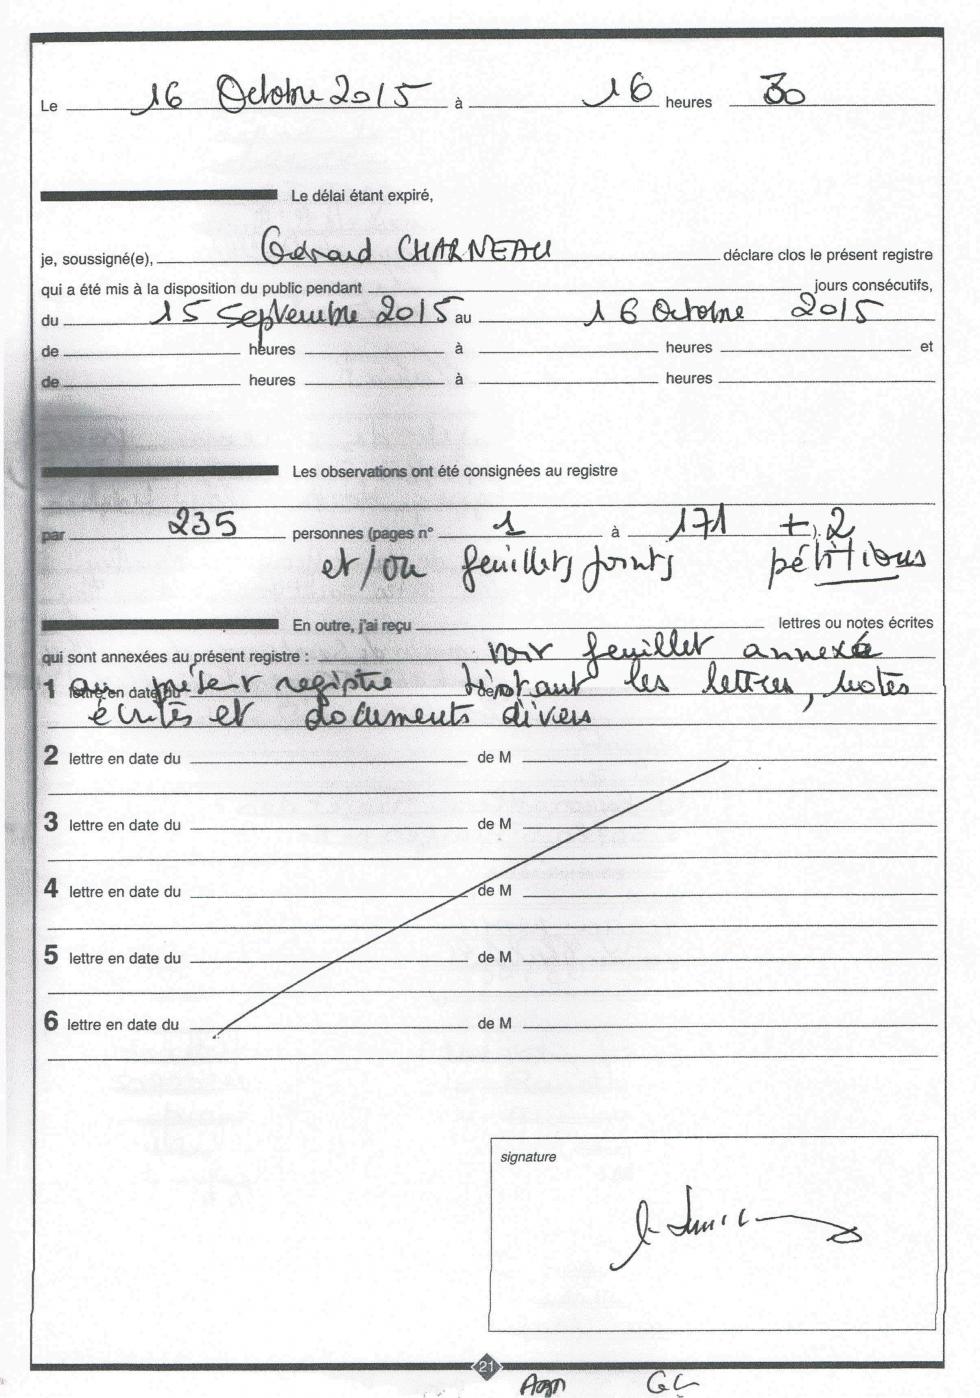 Le 16 Octobre 2015 à 16 heures 30
Le délai étant expiré,
je, soussigné(e), Gérard CHARNEAU déclare clos le présent registre
qui a été mis à la disposition du public pendant jours consécutifs,
du 15 Septembre 2015 au 16 Octobre 2015
de heures à heures et
de heures à heures
Les observations ont été consignées au registre
par 235 personnes (pages n° 1 à 171 +). 2
et/ou feuillets joints pétitions
En outre, j'ai reçu lettres ou notes écrites
qui sont annexées au présent registre : voir feuillet annexé
1 lettre en date du de M
au présent registre listant les lettres, notes
écrites et documents divers
2 lettre en date du de M
3 lettre en date du de M
4 lettre en date du de M
5 lettre en date du de M
6 lettre en date du de M
signature
21
GC